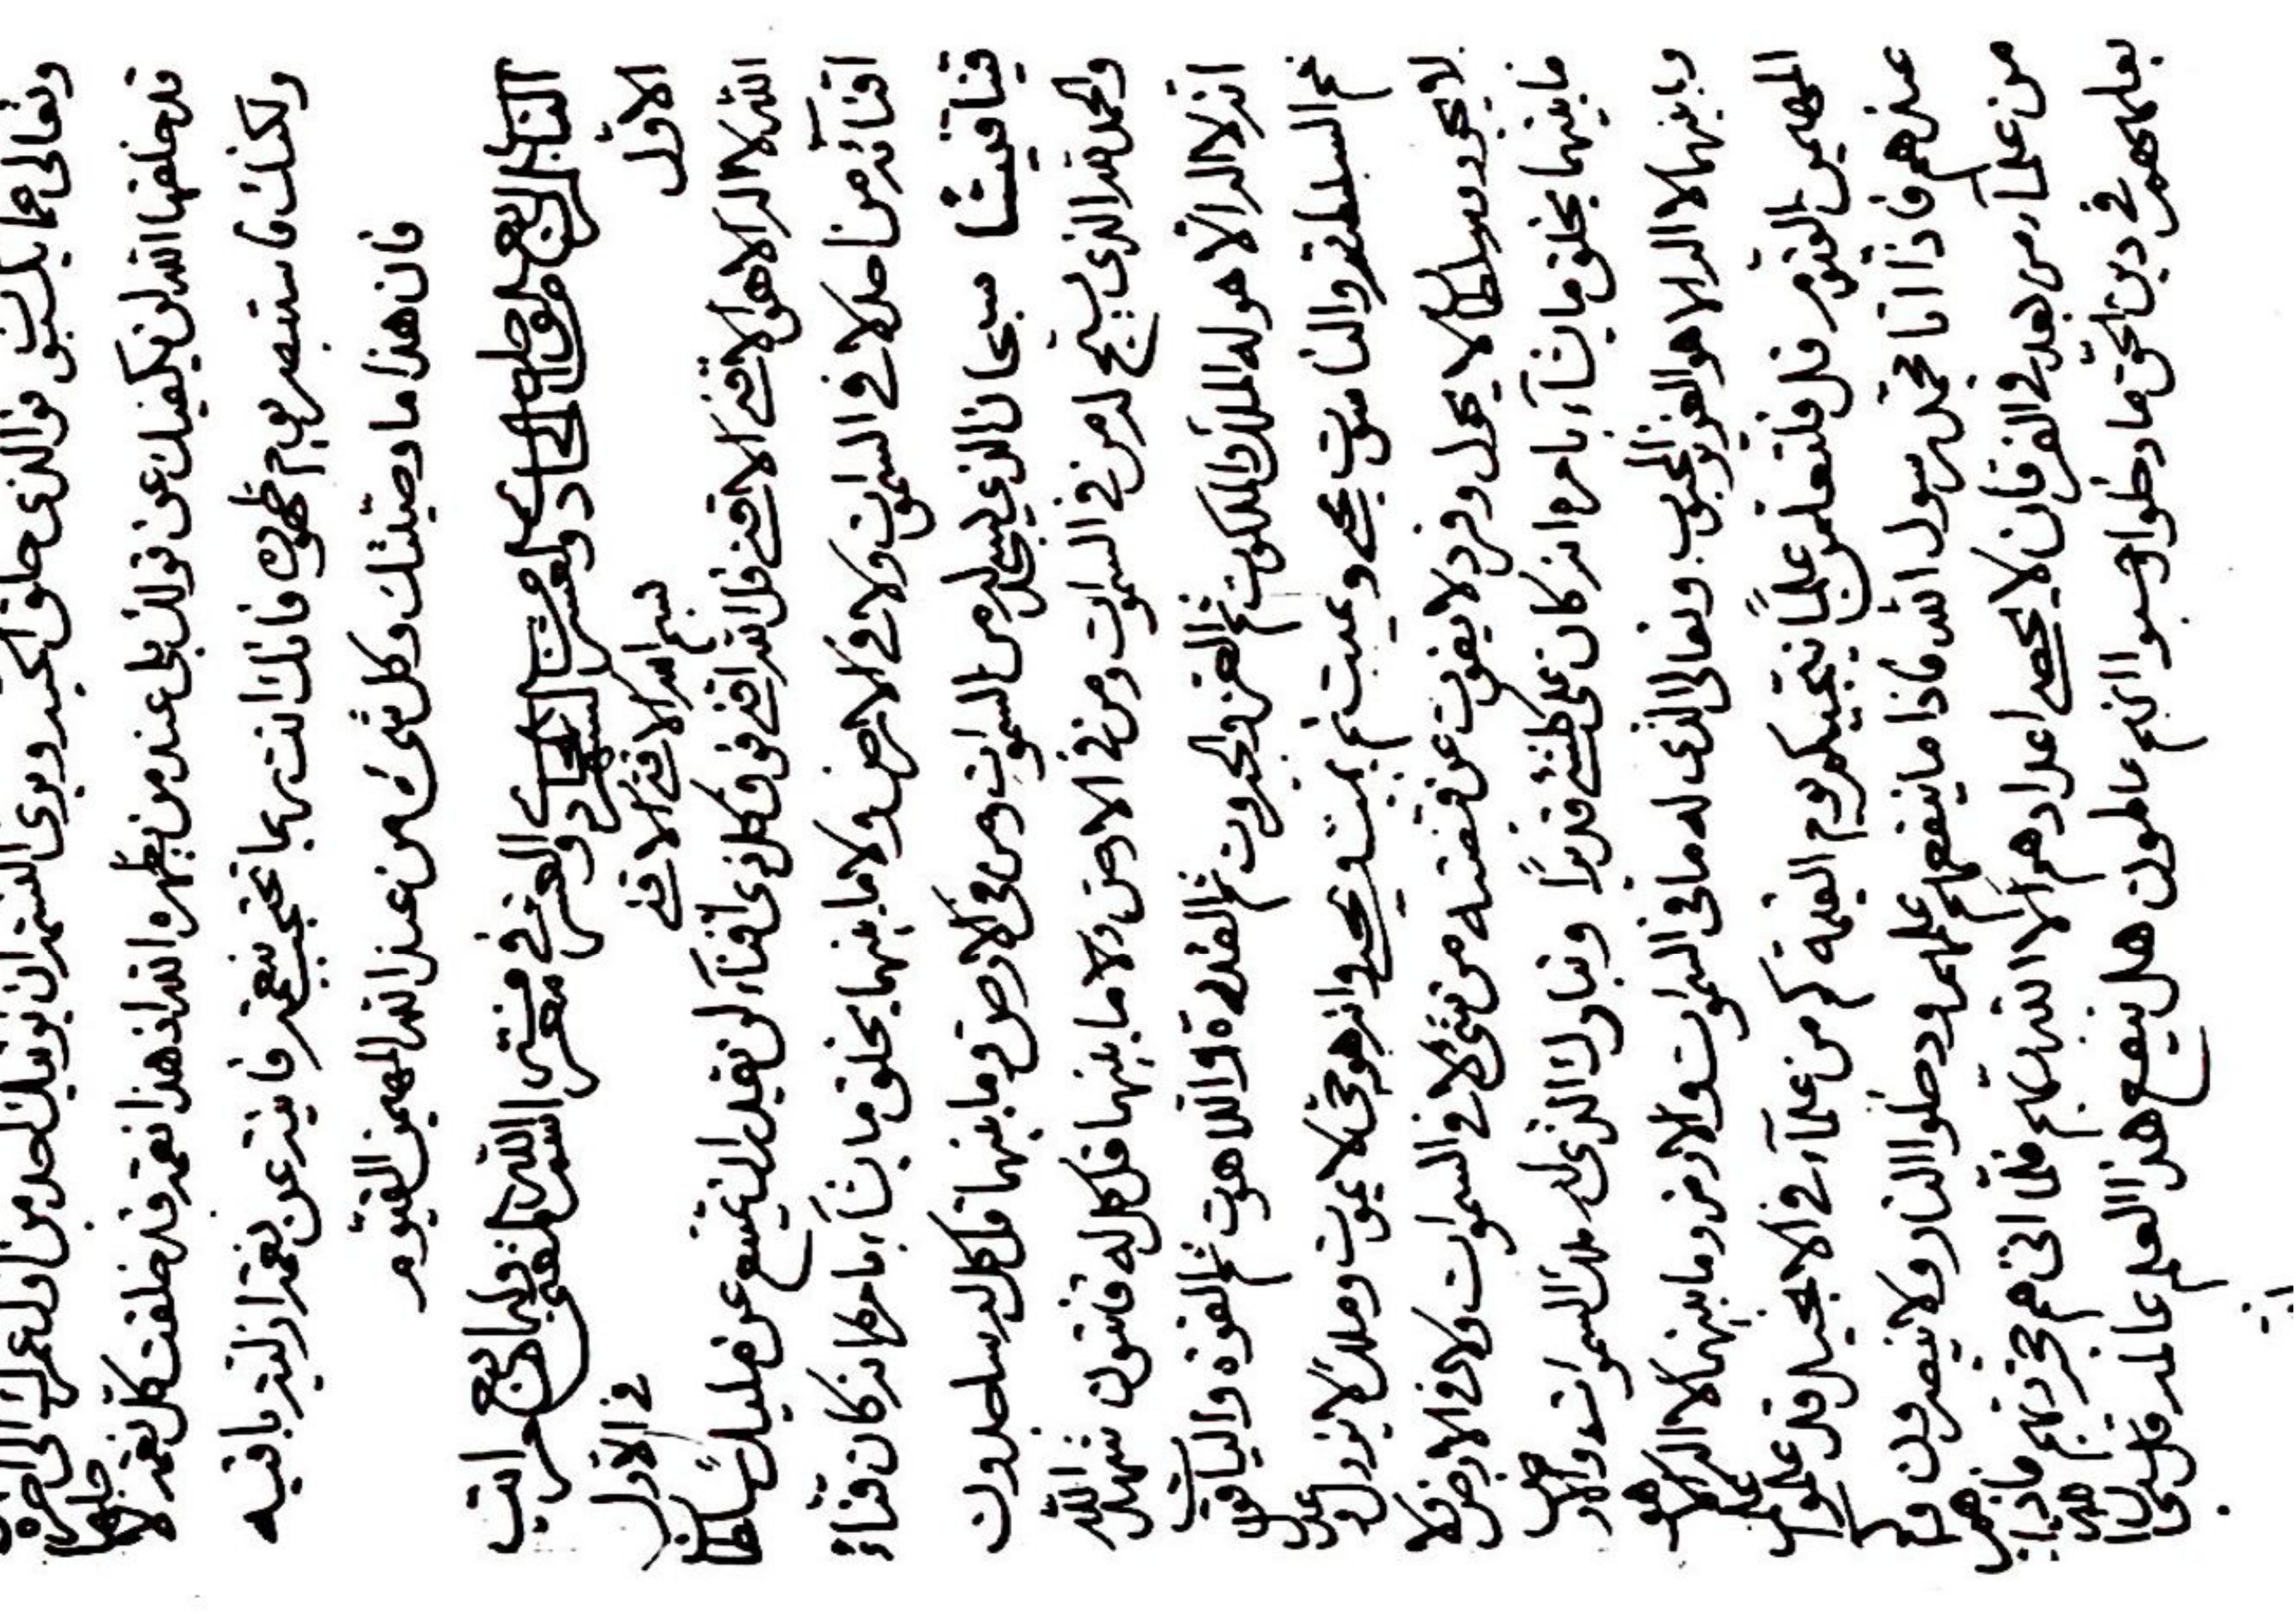 وتعالى عما يكسبون فوالذي خلق الحبة وبرئ النسمة ان يوفقك لحد من اول عمرك الى اخره
قد خلقها الله لن يكفيك عن قولك بلى عند من يظهره الله اذ هذا نعمة قد خلقت كل نعمة لاجلها
ولكنك فاستبصر يوم ظهوره فانك انت ربما تحتجب بنعمة فانية عن نعمة ازلية باقية
فان هذا ما وصيناك وكل شيء من عند الله المهيمن القيوم
الباب الرابع من الواحد الحادي والعشر من الشهر الحادي والعشر في معرفة اسم الله القني وله اربع مراتب
الاول بسم الله الاقنى الاقنى في الاول
الله لا اله الا هو الاقنى الاقنى قل الله اقنى فوق كل ذي اقناء لن يقدر ان يمتنع عن مليك سلطان
اقنائه من احد لا في السموات ولا في الارض ولا ما بينهما يخلق ما يشاء بامره انه كان قناء
قانيا قنيا سبحان الذي يسجد له من في السموات ومن في الارض وما بينهما قل كل له ساجدون
والحمد لله الذي يسبح له من في السموات ومن في الارض ولا ما بينهما قل كل له قانتون شهد الله
انه لا اله الا هو له الملك والملكوت ثم العز والجبروت ثم القدرة واللاهوت ثم القوة والياقوت
ثم السلطنة والناسوت يحيي ويميت ثم يميت ويحيي وانه هو حي لا يموت وملك لا يزول وعدل
لا يجور وسلطان لا يحول وفرد لا يفوت عن قبضته من شيء لا في السموات ولا في الارض ولا
ما بينهما يخلق ما يشاء بامره انه كان على كل شيء قديرا وتبارك الذي له ملك السموات والارض
وما بينهما لا اله الا هو العزيز المحبوب وتعالى الذي له ما في السموات والارض وما بينهما لا اله الا هو
المهيمن القيوم قل فلتتعلمن علما ينجيكم يوم القيمة كم من علماء في الانجيل قد علموا علم
عندهم فاذا اتى محمد رسول الله فاذا ما ينفعهم علمهم ودخلوا النار ولا ينصرون وكم
من علماء من بعد في الفرقان لا يحصي اعدادهم الا الله ربهم فلما اتى هم حجة ربهم فاذا هم
بعلمهم في دين الحق ما دخلوا وحسبوا انهم عالمون هل ينفع هذا العلم عالمه قل